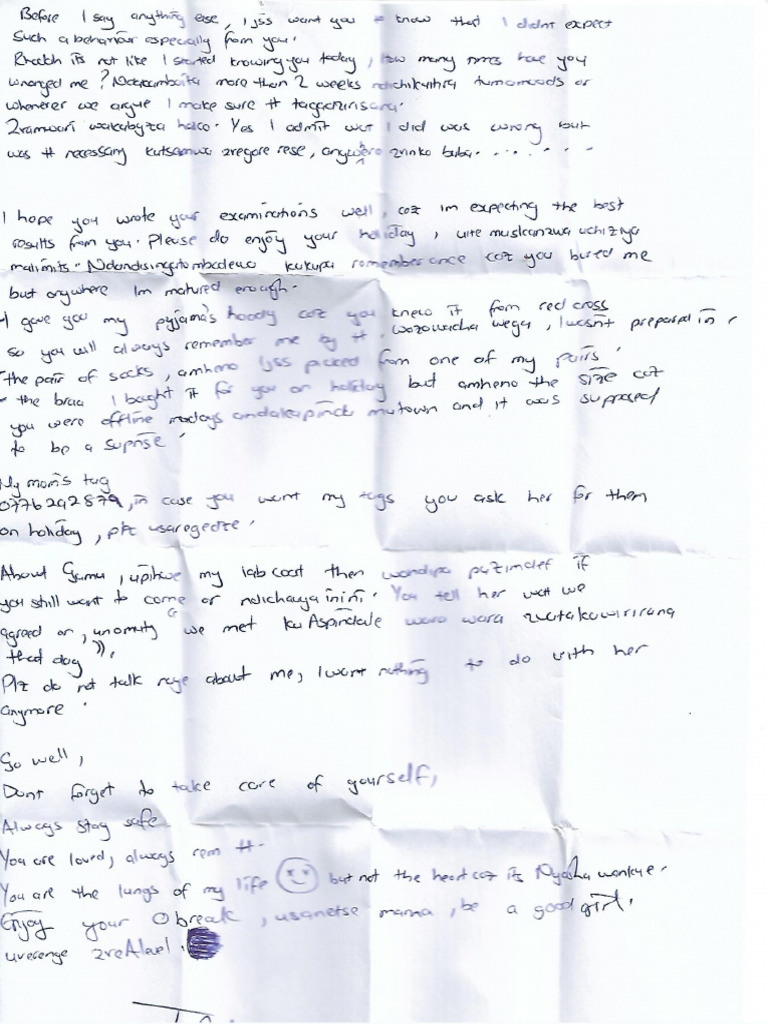 Before I say anything else, I jss want you to know that I didnt expect
Such a behaviour especially from you.
its not like I started knowing you today, How many times have you
wronged me? more than 2 weeks ndichikuitira tumamoods or
whenever we argue I make sure it
2ramwari wakabyza hako. Yes I admit wat I did was wrong but
was it necessary kutsamwa zvegore rese, anywere zvinko baba.......
I hope you wrote your examinations well, coz im expecting the best
results from you. Please do enjoy your holiday, uite musikanzwa uchiziya
malimits. kukupa rememberance coz you bured me
but anywhere Im matured enough.
- I gave you my pyjama's hoody coz you knew it from red cross
so you will always remember me by it. wozowacha wega, I wasnt prepared
- the pair of socks, amheno I jss picked from one of my pairs.
- the braa I bought it for you on holiday but amheno the size coz
you were offline mudays andakapinda mutown and it was supposed
to be a suprise.
My mom's tag
0776292879, in case you want my tags you ask her for them
on holiday, plz usaregedze.
About Gamu, upihwe my lab coat then if
you still want to come or ndichauya inini. You tell her wat we
agreed on, we met kuAspindale waro wara
that day)).
Plz do not talk naye about me, I want nothing to do with her
anymore.
Go well,
Dont forget to take care of yourself,
Always stay safe
You are loved, always rem it.
You are the lungs of my life but not the heart coz its Nyasha wankye.
Enjoy your break, usanetse mama, be a good girl.
uverenge